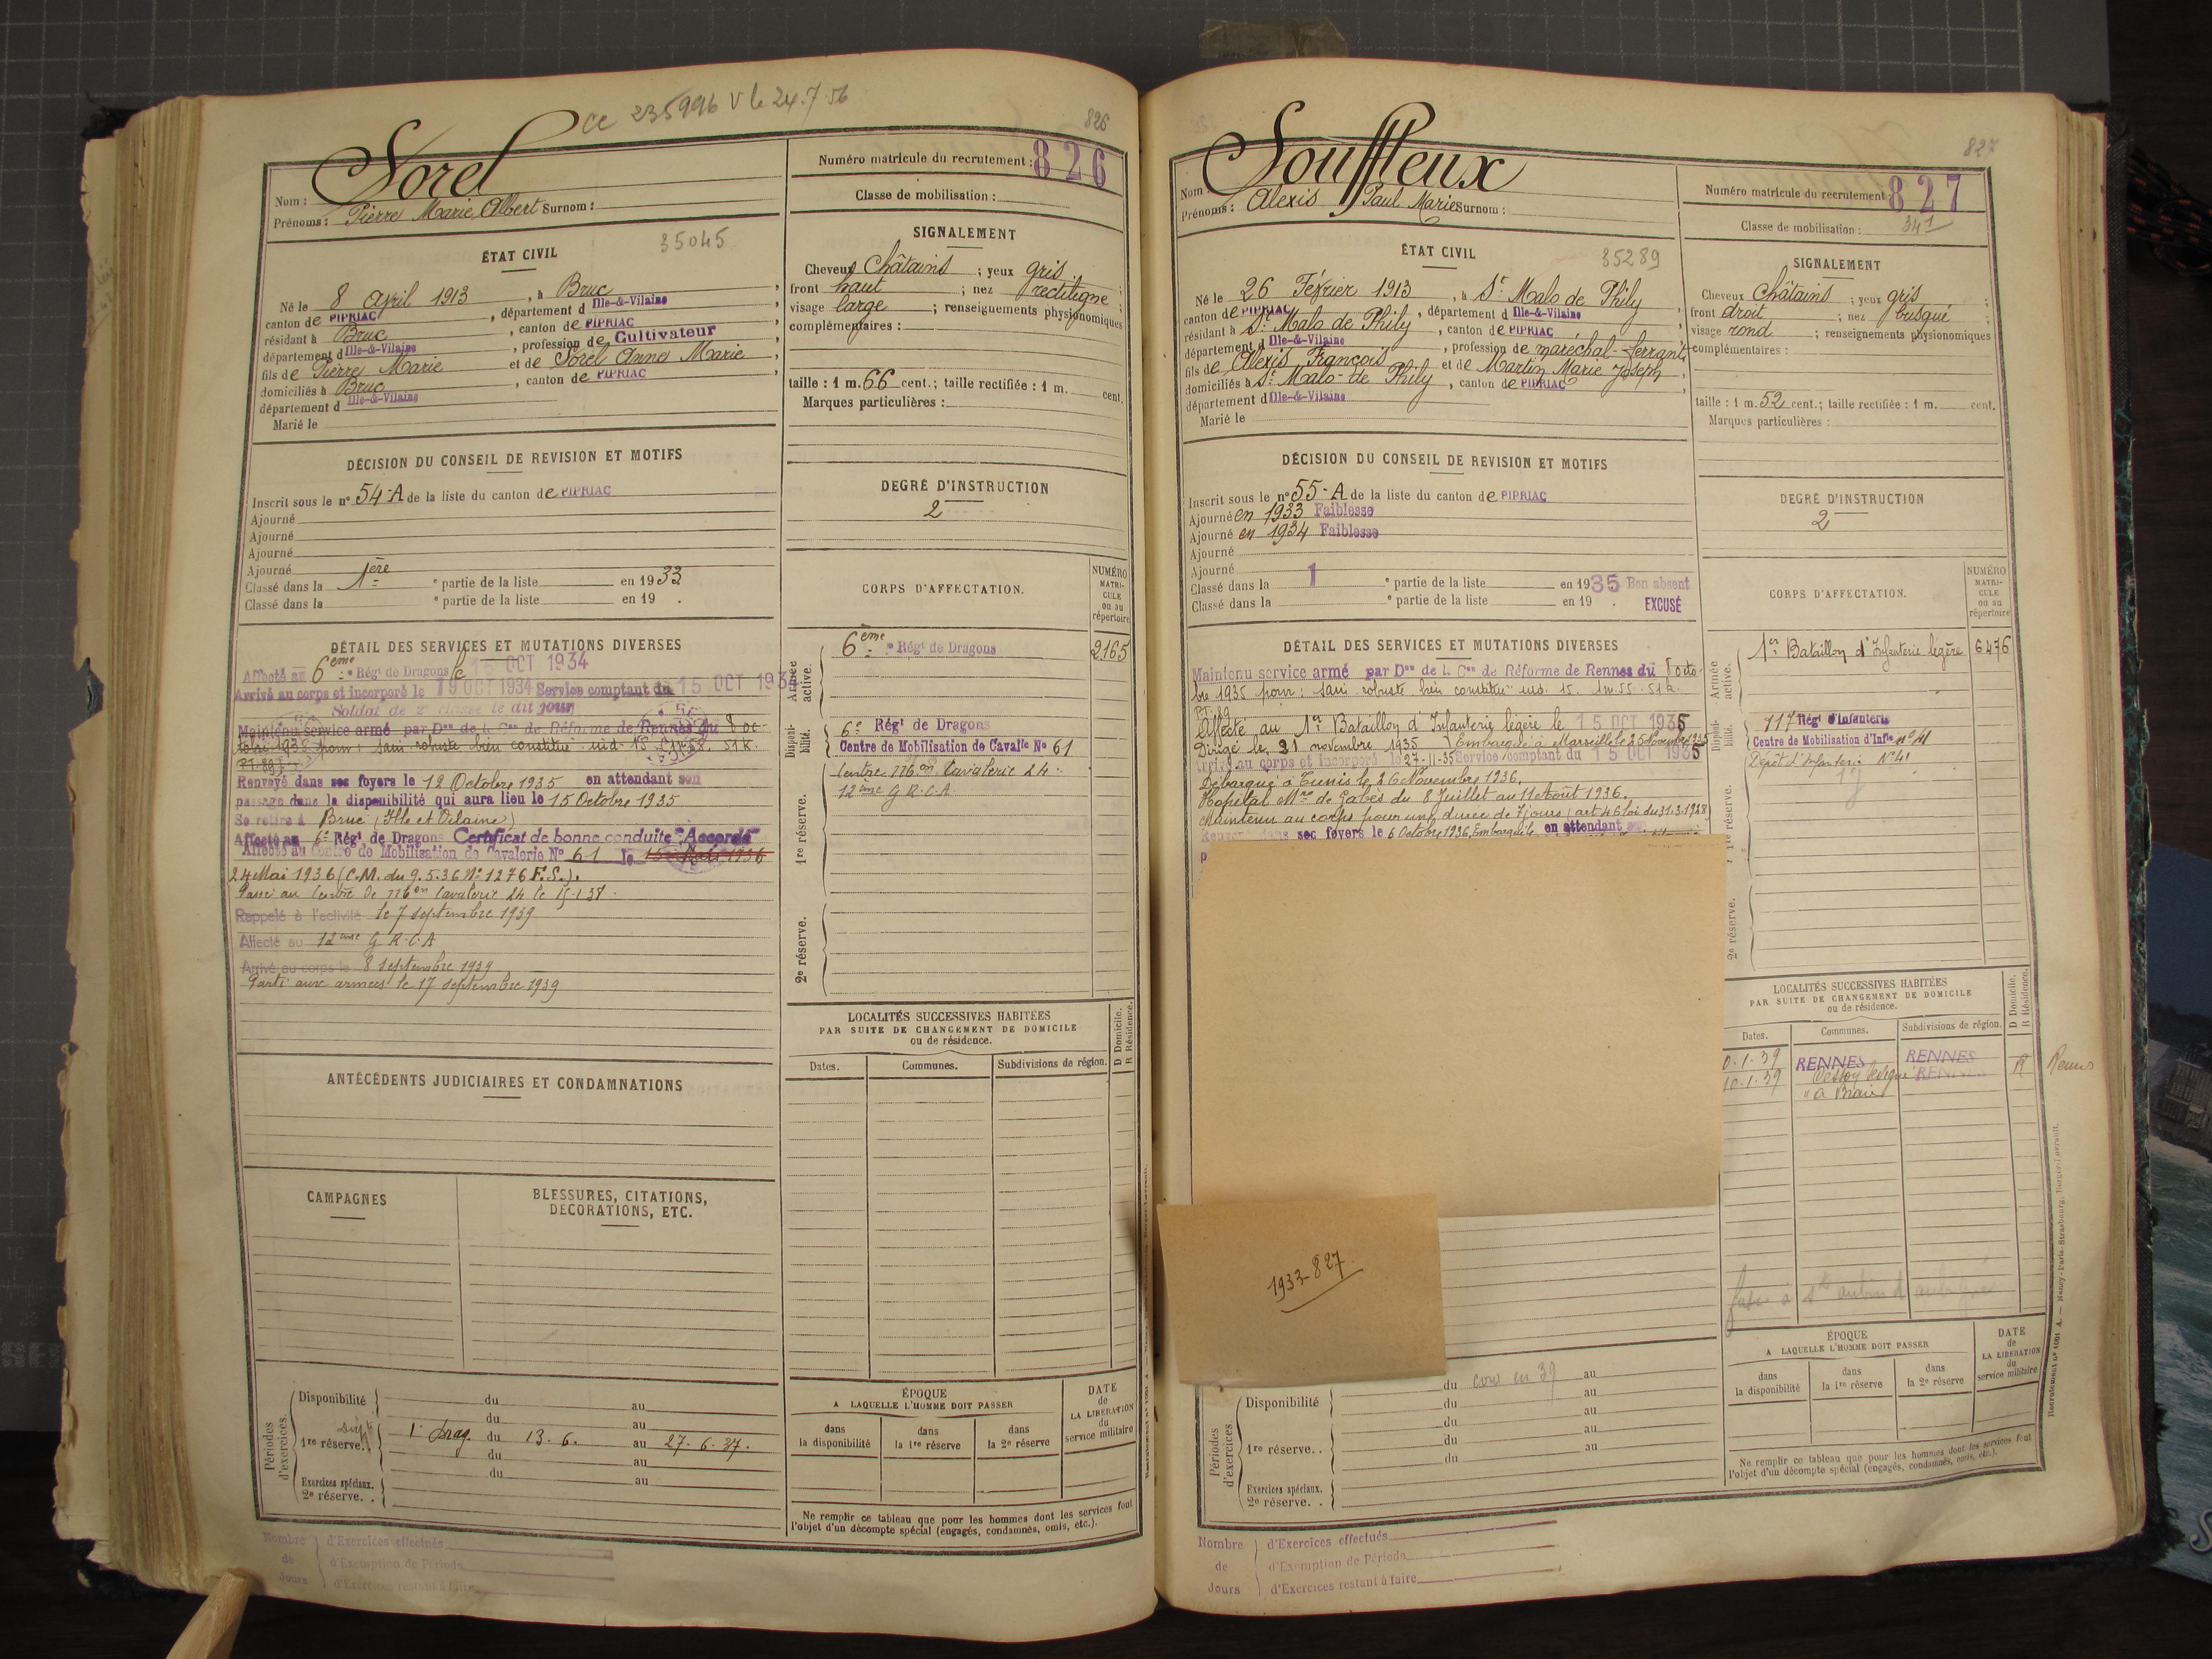 cc 235996 V le 24.7.56
826
Nom : Sorel
Prénoms : Pierre Marie Albert Surnom :
Numéro matricule du recrutement : 826
Classe de mobilisation :
ÉTAT CIVIL
35045
Né le 8 Avril 1913, à Bruc,
canton de PIPRIAC, département d Ille-&-Vilaine,
résidant à Bruc, canton de PIPRIAC,
département d Ille-&-Vilaine, profession de Cultivateur
fils de Pierre Marie et de Sorel Anne Marie,
domiciliés à Bruc, canton de PIPRIAC,
département d Ille-&-Vilaine
Marié le
SIGNALEMENT
Cheveux Châtains ; yeux gris ;
front haut ; nez rectiligne ;
visage large ; renseignements physionomiques
complémentaires :
taille : 1 m. 66 cent. ; taille rectifiée : 1 m. cent.
Marques particulières :
DÉCISION DU CONSEIL DE REVISION ET MOTIFS
Inscrit sous le n° 54-A de la liste du canton de PIPRIAC
Ajourné
Ajourné
Ajourné
Ajourné
Classé dans la 1ère partie de la liste en 1933
Classé dans la e partie de la liste en 19 .
DEGRÉ D'INSTRUCTION
2
DÉTAIL DES SERVICES ET MUTATIONS DIVERSES
Affecté au 6ème Régt de Dragons le 15 OCT 1934
Arrivé au corps et incorporé le 19 OCT 1934 Service comptant du 15 OCT 1934
Soldat de 2e classe le dit jour
Maintenu service armé par Don de la Con de Réforme de Rennes du 8 oc-
tobre 1935 pour : sain robuste bien constitué
PT. 89
Renvoyé dans ses foyers le 12 Octobre 1935 en attendant son
passage dans la disponibilité qui aura lieu le 15 Octobre 1935
Se retire à Bruc (Ille et Vilaine)
Affecté au 6e Régt de Dragons Certificat de bonne conduite "Accordé"
Affecté au Centre de Mobilisation de Cavalerie No 61 le 15 1936
24 Mai 1936 (C.M. du 9.5.36 No 1276 F.S.).
Passé au Centre de Mbon Cavalerie 24 le
Rappelé à l'activité le 7 septembre 1939
Affecté au 12eme G R C A
Arrivé au corps le 8 septembre 1939
Parti aux armées le 17 septembre 1939
CORPS D'AFFECTATION.
NUMÉRO MATRICULE ou au répertoire
Armée active.
6ème Régt de Dragons 2165
Disponibilité.
6e Régt de Dragons
Centre de Mobilisation de Cavalle No 61
1re réserve.
Centre Mbon Cavalerie 24
12eme G R C A
2e réserve.
ANTÉCÉDENTS JUDICIAIRES ET CONDAMNATIONS
CAMPAGNES
BLESSURES, CITATIONS, DÉCORATIONS, ETC.
LOCALITÉS SUCCESSIVES HABITÉES
PAR SUITE DE CHANGEMENT DE DOMICILE
ou de résidence.
D Domicile. R Résidence.
Dates. Communes. Subdivisions de région.
Périodes d'exercices.
Disponibilité du au
du au
1re réserve. 1er Drag. du 13.6. au 27.6.37.
du au
du au
Exercices spéciaux.
2e réserve. .
ÉPOQUE
A LAQUELLE L'HOMME DOIT PASSER
dans la disponibilité
dans la 1re réserve
dans la 2e réserve
DATE de LA LIBÉRATION du service militaire
Ne remplir ce tableau que pour les hommes dont les services font
l'objet d'un décompte spécial (engagés, condamnés, omis, etc.).
Nombre de Jours
d'Exercices effectués
d'Exemption de Période
d'Exercices restant à faire
827
Nom : Souffleux
Prénoms : Alexis Paul Marie Surnom :
Numéro matricule du recrutement 827
Classe de mobilisation : 34 1
ÉTAT CIVIL
35289
Né le 26 Février 1913, à St Malo de Phily,
canton de PIPRIAC, département d Ille-&-Vilaine,
résidant à St Malo de Phily, canton de PIPRIAC,
département d Ille-&-Vilaine, profession de maréchal-ferrant
fils de Alexis François et de Martin Marie Joseph,
domiciliés à St Malo-de Phily, canton de PIPRIAC,
département d Ille-&-Vilaine
Marié le
SIGNALEMENT
Cheveux Châtains ; yeux gris ;
front droit ; nez busqué ;
visage rond ; renseignements physionomiques
complémentaires :
taille : 1 m. 52 cent. ; taille rectifiée : 1 m. cent.
Marques particulières :
DÉCISION DU CONSEIL DE REVISION ET MOTIFS
Inscrit sous le n° 55-A de la liste du canton de PIPRIAC
Ajourné en 1933 Faiblesse
Ajourné en 1934 Faiblesse
Ajourné
Ajourné
Classé dans la 1 e partie de la liste en 1935 Bon absent
Classé dans la e partie de la liste en 19 . EXCUSÉ
DEGRÉ D'INSTRUCTION
2
DÉTAIL DES SERVICES ET MUTATIONS DIVERSES
Maintenu service armé par Don de la Con de Réforme de Rennes du 8 octo-
bre 1935 pour : sain robuste bien constitué ind. 15. 1m.55. 51k.
PT. 89
Affecté au 1er Bataillon d'Infanterie légère le 15 OCT 1935
Dirigé le 21 novembre 1935 Embarqué à Marseille le 25 Novembre 1935
Arrivé au corps et incorporé le 27-11-35 Service comptant du 15 OCT 1935
Débarqué à Tunis le 26 Novembre 1936.
Hôpital Mre de Gabès du 8 Juillet au 11 Août 1936.
Maintenu au corps pour une durée de 7 jours (art 46 loi du 31.3.1928)
Renvoyé dans ses foyers le 6 Octobre 1936, Embarqué le en attendant
CORPS D'AFFECTATION.
NUMÉRO MATRICULE ou au répertoire
Armée active.
1er Bataillon d'Infanterie légère 6476
Disponibilité.
117 Régt d'Infanterie
Centre de Mobilisation d'Infie No 41
Dépôt d'Infanterie No 41
1re réserve.
2e réserve.
1933-827
LOCALITÉS SUCCESSIVES HABITÉES
PAR SUITE DE CHANGEMENT DE DOMICILE
ou de résidence.
D Domicile. R Résidence.
Dates. Communes. Subdivisions de région.
0.1.39 RENNES RENNES
10.1.39 RENNES R
Périodes d'exercices.
Disponibilité du conv en 39 au
du au
du au
1re réserve. . du au
du au
Exercices spéciaux.
2e réserve. .
ÉPOQUE
A LAQUELLE L'HOMME DOIT PASSER
dans la disponibilité
dans la 1re réserve
dans la 2e réserve
DATE de LA LIBÉRATION du service militaire
Ne remplir ce tableau que pour les hommes dont les services font
l'objet d'un décompte spécial (engagés, condamnés, omis, etc.).
Nombre de Jours
d'Exercices effectués
d'Exemption de Période
d'Exercices restant à faire